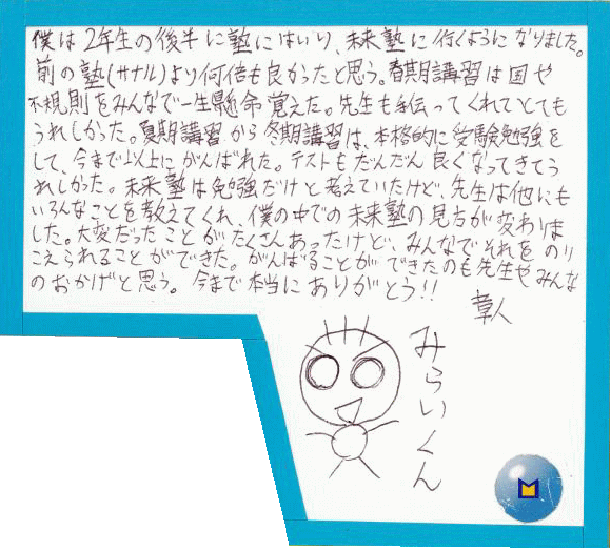 僕は2年生の後半に塾にはいり、未来塾に行くようになりました。
前の塾(サナル)より何倍も良かったと思う。春期講習は国や
不規則をみんなで一生懸命覚えた。先生も手伝ってくれていてとても
うれしかった。夏期講習から冬期講習は、本格的に受験勉強を
して、今まで以上にがんばれた。テストもだんだん良くなってきてう
れしかった。未来塾は勉強だけと考えていたけど、先生は他にも
いろんなことを教えてくれ、僕の中での未来塾の見方が変わりま
した。大変だったことがたくさんあったけど、みんなでそれをのり
こえられることができた。がんばることができたのも先生やみんな
のおかげと思う。今まで本当にありがとう!!
章人
みらいくん
M